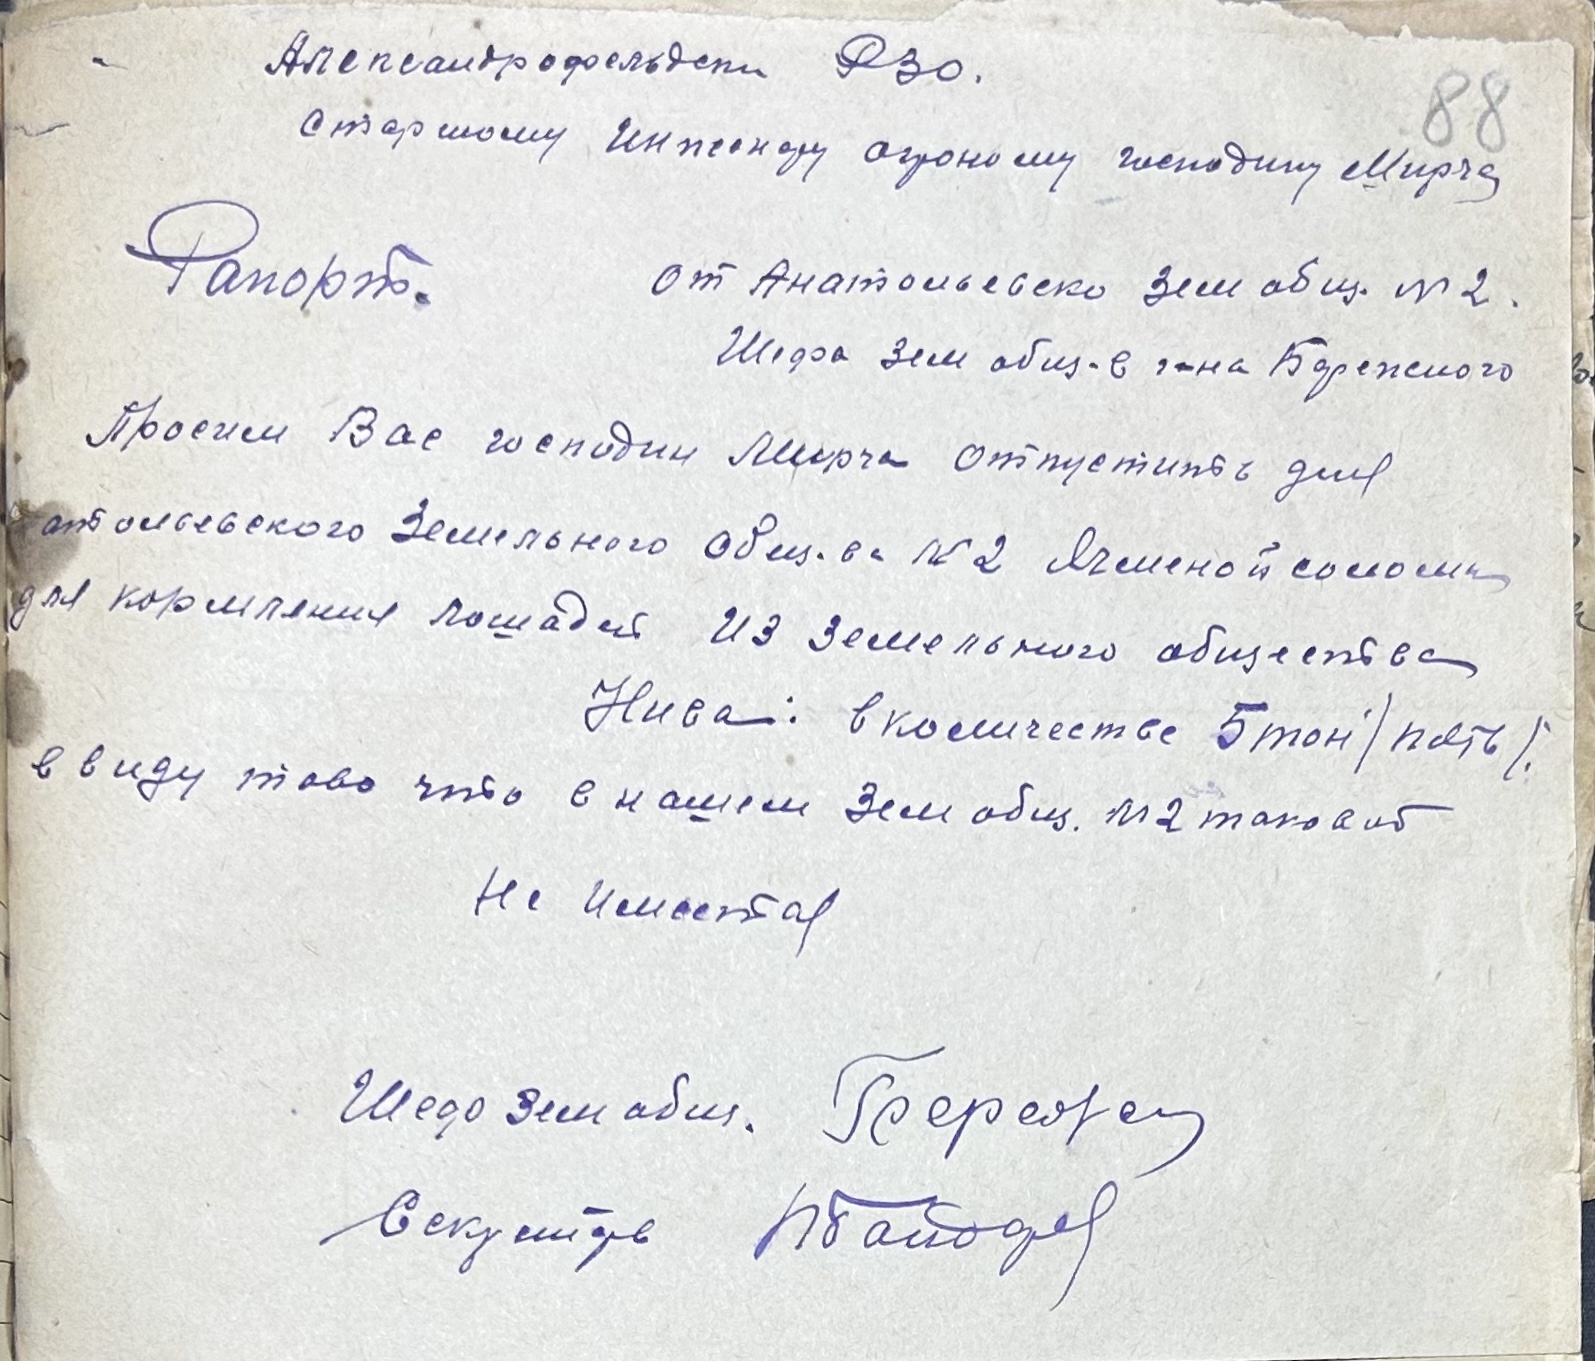 Александрофельдски РЗО.
88
Старшому Инженеру огроному господину Мирча
Рапорт.
От Анатольевско Зем общ. № 2.
Шефа Зем общ-в г-на Бережского
Просим Вас господин Мирча отпустить для
атольевского Земельного общ-ва № 2 Ячменой соломы
для кормления лошадей Из Земельного общества
Нива: в количестве 5 тон /пять/.
в виду тово что в нашем Зем общ. № 2 таковой
Не Имеетая
Шефа Зем общ.